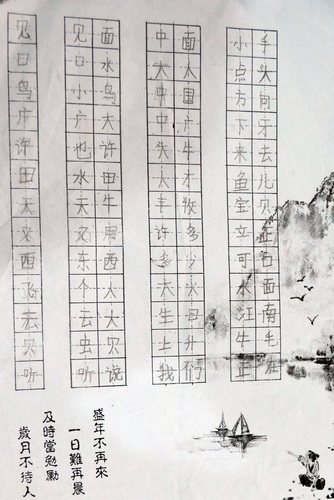 手头向牙去儿贝正石面南毛准
小点方下来鱼宝立可水江牛正
面大国广牛才牧多少火马升们
中大中中头人丰许多天生土我
面水鸟大许田牛用西人大贝说
见口小广也水天又东个云虫听
见口鸟广许田天衣西飞云贝听
盛年不再來
一日難再晨
及時當勉勵
歲月不待人